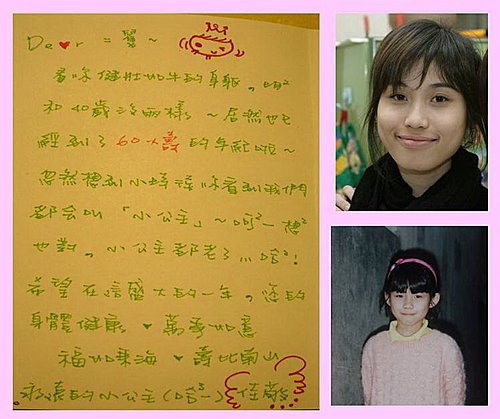 Dear = 鸞～
看你健壯如牛的身軀。明²
和40歲沒兩樣～居然也已
經到了60大壽的年紀啦～
忽然想到小時候你看到我們
都會叫「小公主」～呵²一想²
也對。小公主都老了…哈²！
希望在這盛大的一年。您的
身體健康♥萬事如意
福如東海♥壽比南山
永遠的小公主(哈³～) 佳